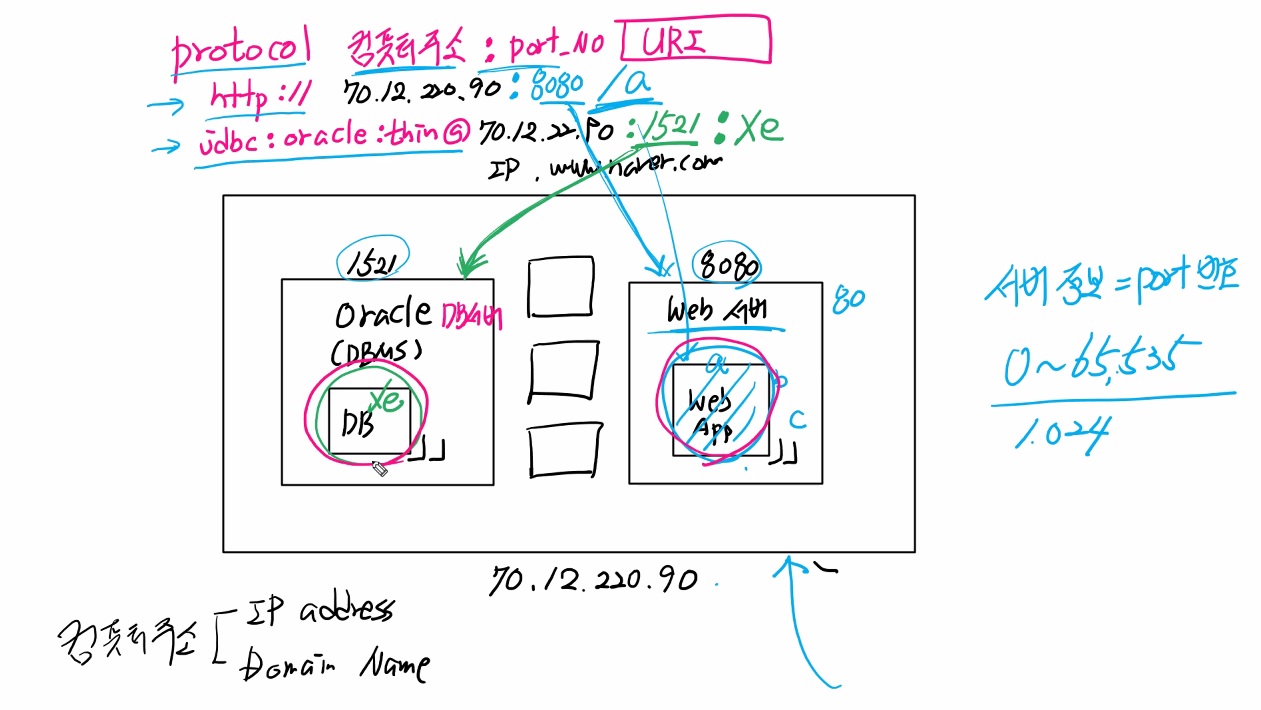 protocol 컴퓨터주소 : port_No URI
→ http:// 70.12.220.90 : 8080 /a
→ jdbc:oracle:thin@ 70.12.22.90 :1521 : xe
IP . www.naver.com
1521
8080
Oracle DB서버
(DBMS)
xe
DB
Web 서버
80
a
b
Web
App
c
서버 구분 = port 번호
0~65,535
1.024
70.12.220.90
컴퓨터주소
IP address
Domain Name